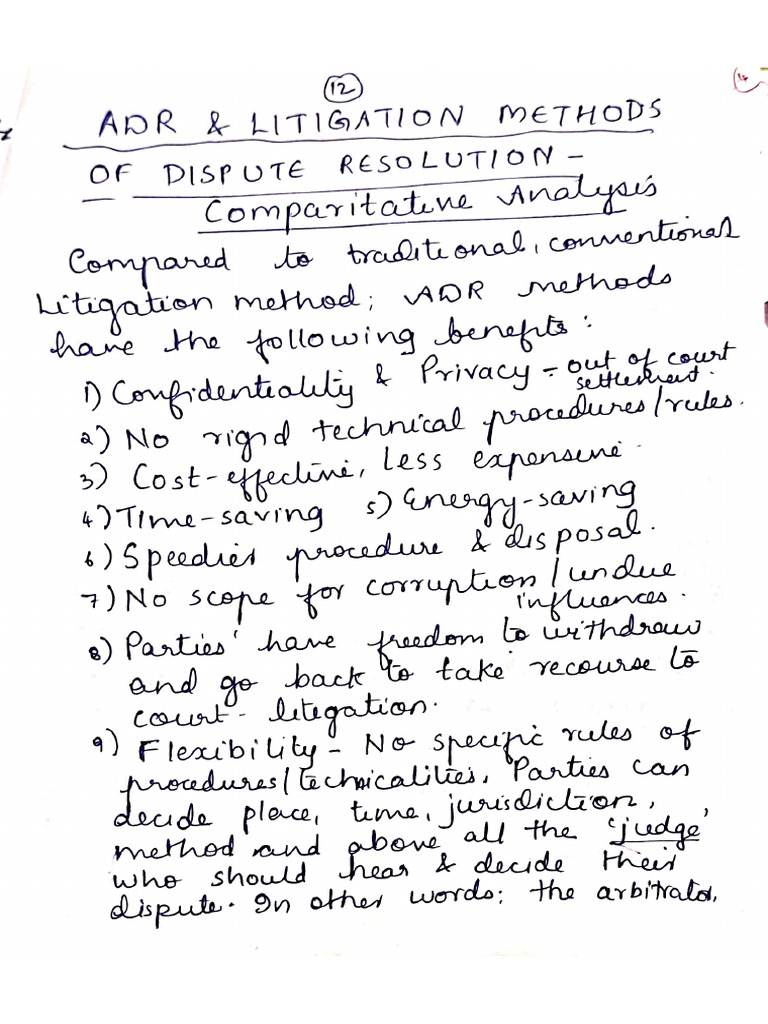 12
ADR & LITIGATION METHODS
OF DISPUTE RESOLUTION –
Comparitative Analysis
Compared to traditional, conventional
Litigation method; ADR methods
have the following benefits:
1) Confidenteality & Privacy – out of court
settlement.
2) No rigid technical procedures/rules.
3) Cost-effective, less expensive.
4) Time-saving 5) Energy-saving
6) Speedier procedure & disposal.
7) No scope for corruption/undue
influences.
8) Parties' have freedom to withdraw
and go back to take recourse to
court-letegation.
9) Flexibility – No specific rules of
procedures/technicalities, Parties can
decide place, time, jurisdiction,
method and above all the 'judge'
who should hear & decide their
dispute. In other words; the arbitrator,